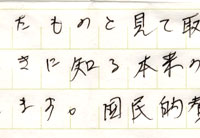 たものと見て取
きに知る本来の
ます。国民的責